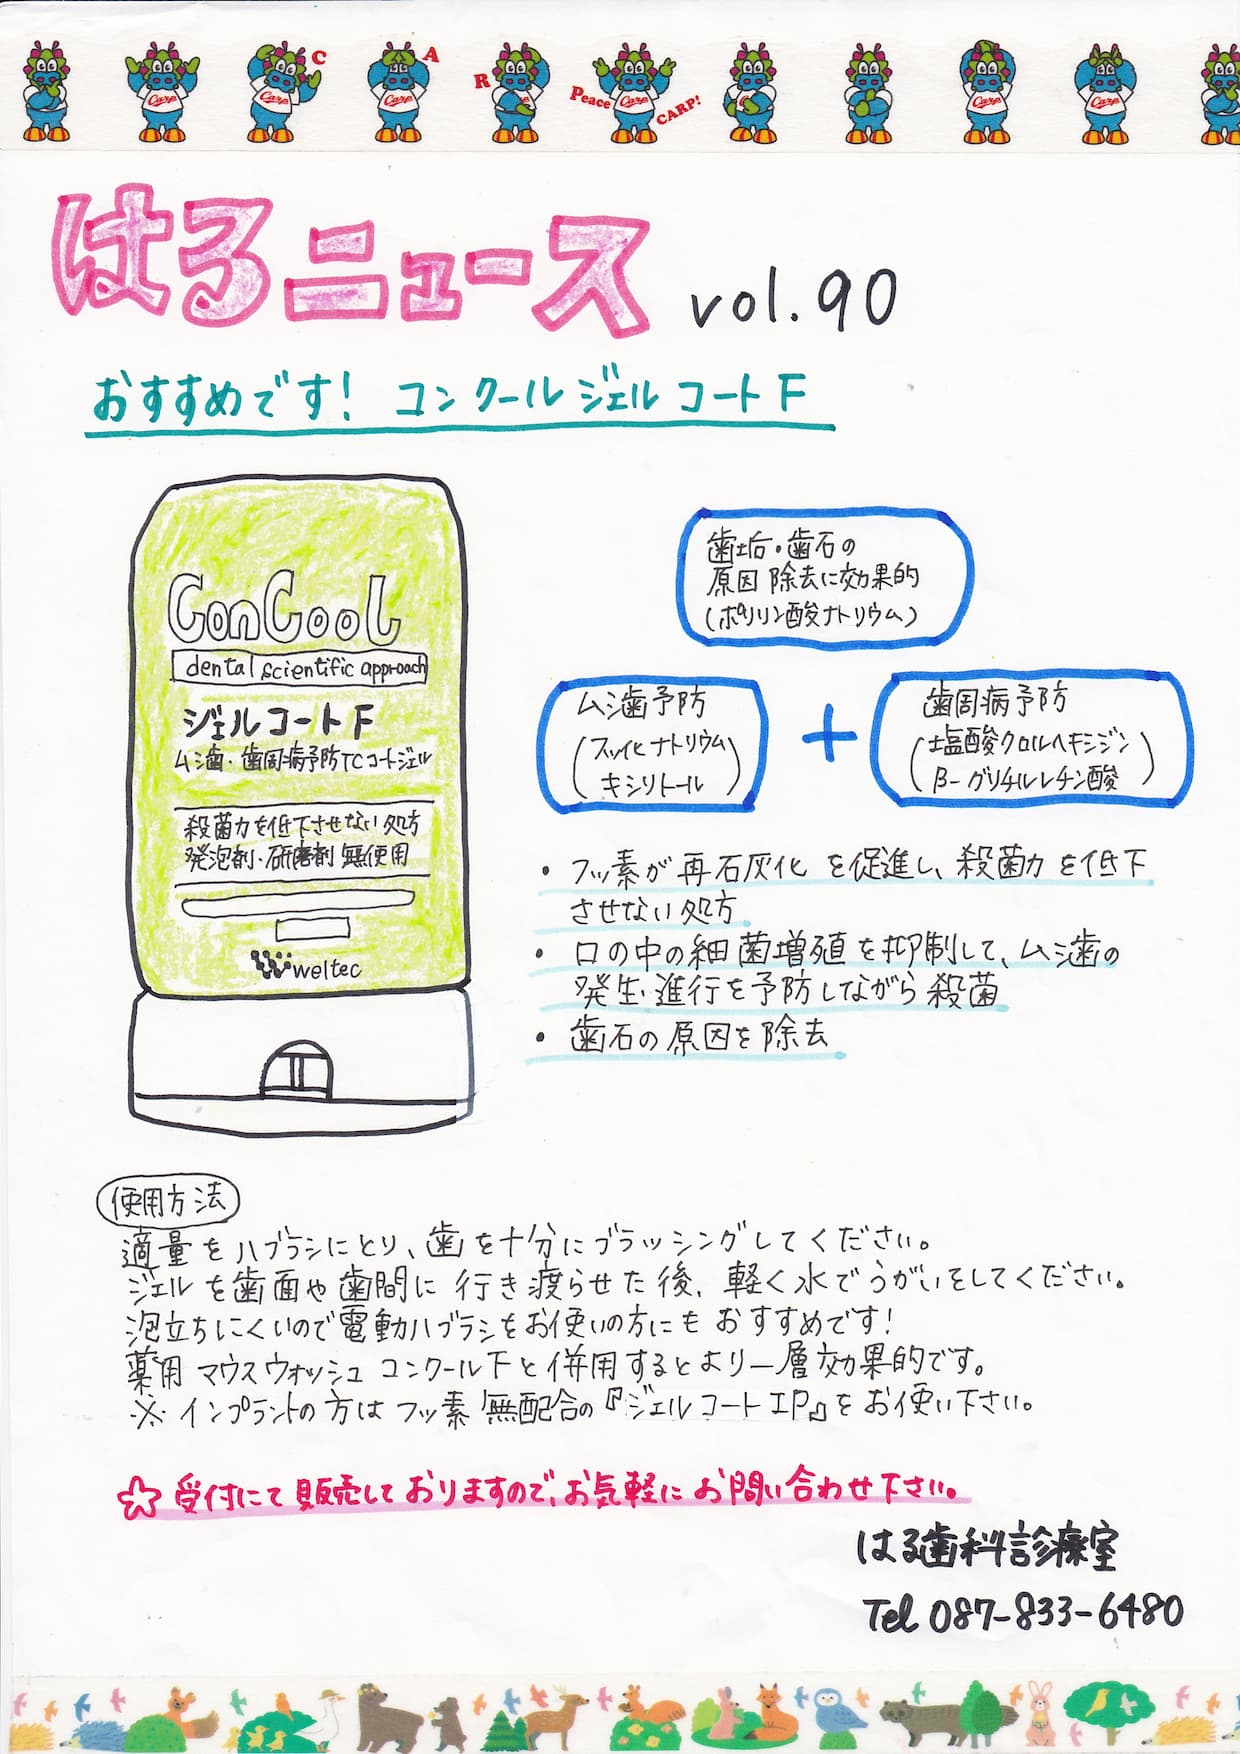 C
A
R
Peace
CARP!
Carp
Carp
Carp
Carp
Carp
Carp
はるニュース vol.90
おすすめです! コンクールジェルコートF
ConCool
dental scientific approach
ジェルコートF
ムシ歯・歯周病予防TCコートジェル
殺菌力を低下させない処方
発泡剤・研磨剤無使用
weltec
歯垢・歯石の
原因除去に効果的
(ポリリン酸ナトリウム)
ムシ歯予防
(フッ化ナトリウム
キシリトール)
+
歯周病予防
(塩酸クロルヘキシジン
β-グリチルレチン酸)
・フッ素が再石灰化を促進し、殺菌力を低下
させない処方
・口の中の細菌増殖を抑制して、ムシ歯の
発生・進行を予防しながら殺菌
・歯石の原因を除去
使用方法
適量をハブラシにとり、歯を十分にブラッシングしてください。
ジェルを歯面や歯間に行き渡らせた後、軽く水でうがいをしてください。
泡立ちにくいので電動ハブラシをお使いの方にもおすすめです!
薬用マウスウォッシュコンクールFと併用するとより一層効果的です。
※インプラントの方はフッ素無配合の『ジェルコートIP』をお使い下さい。
☆受付にて販売しておりますので、お気軽にお問い合わせ下さい。
はる歯科診療室
Tel 087-833-6480